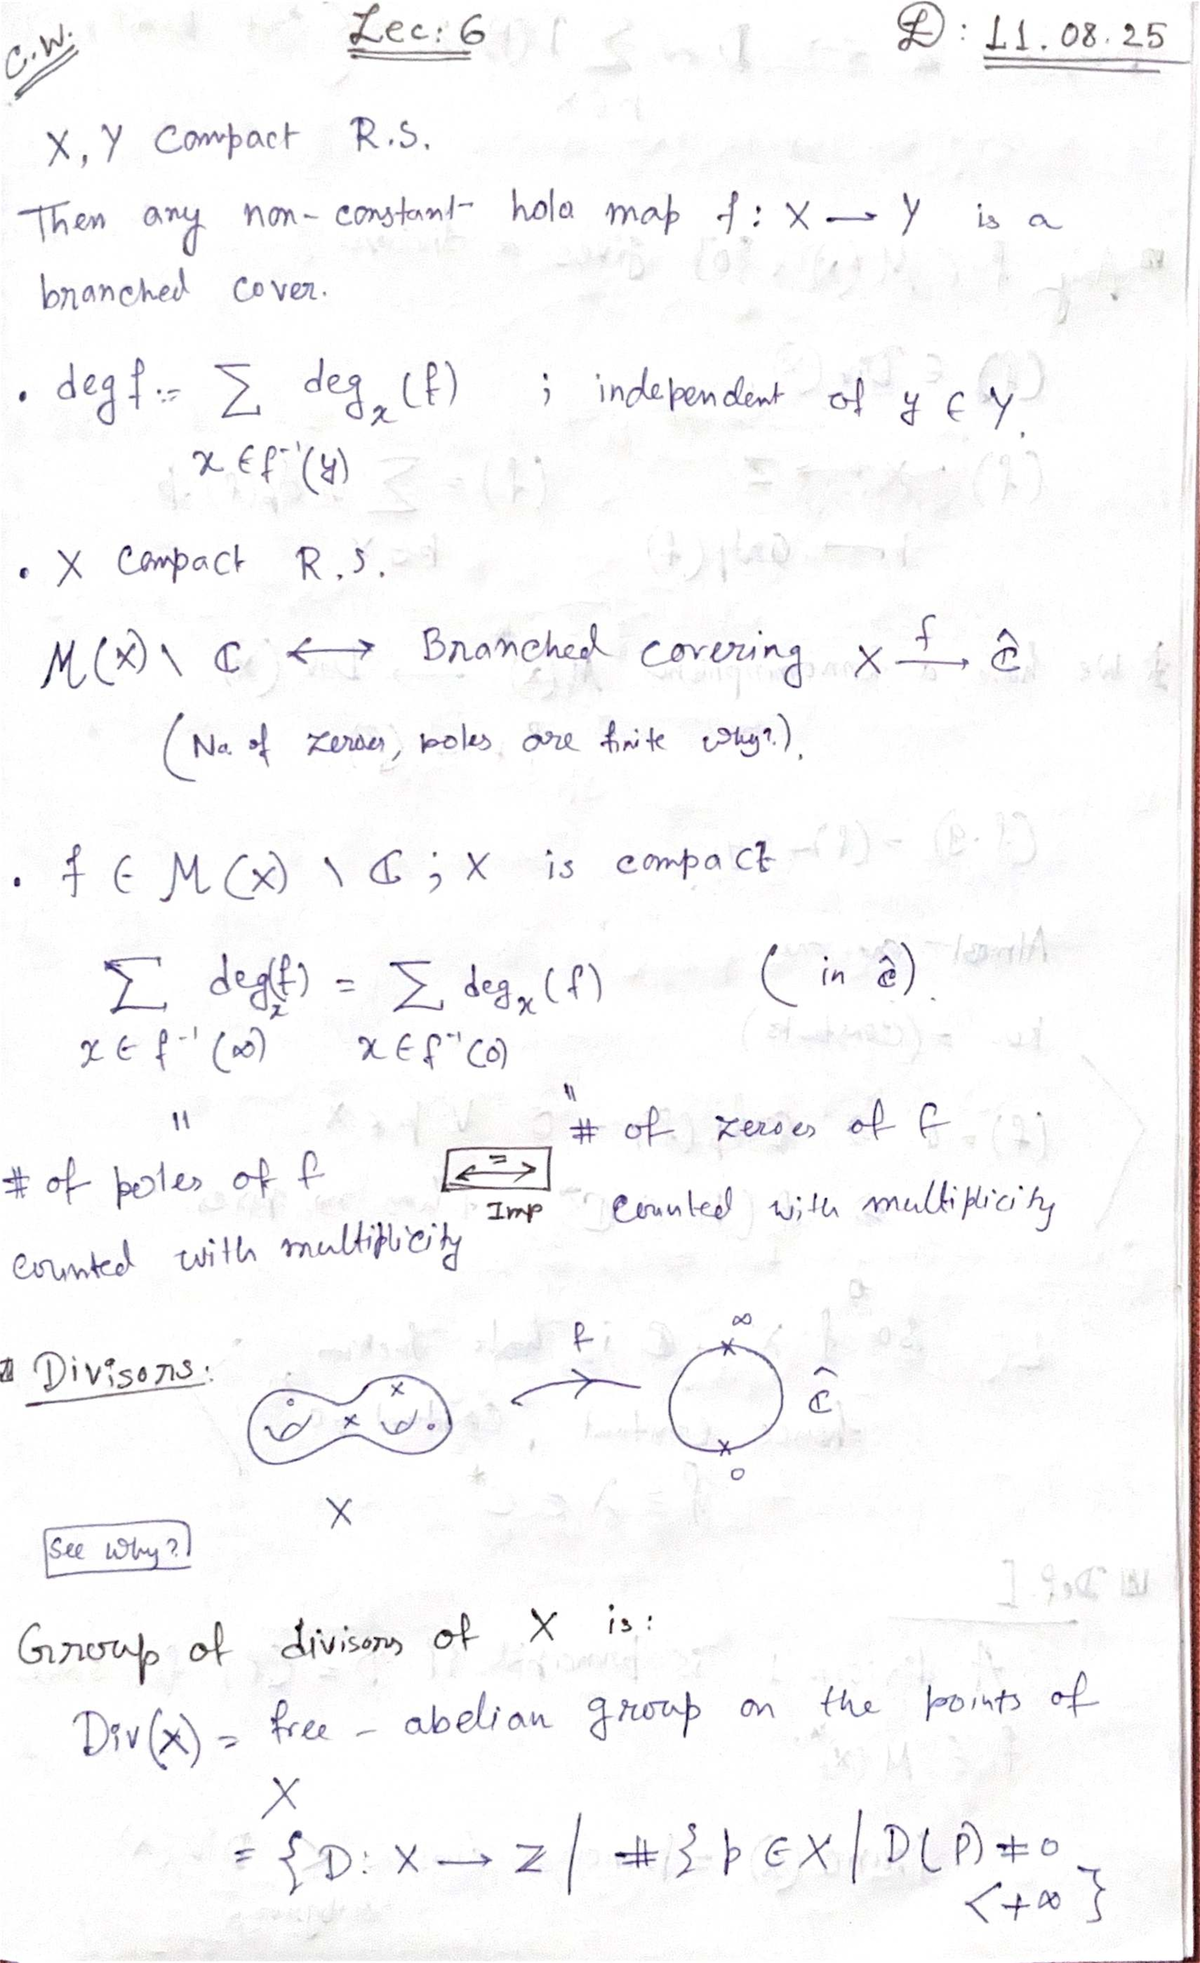 C.W.
Lec: 6
D: 11.08.25
X, Y Compact R.S.
Then any non-constant holo map f: X → Y is a
branched cover.
• deg f := Σ deg_x (f) ; independent of y ∈ Y.
x ∈ f⁻¹(y)
• X Compact R.S.
M(X) \ ℂ ↔ Branched covering X —f→ ĉ
(No. of zeroes, poles are finite why?).
• f ∈ M(X) \ ℂ ; X is compact
Σ deg_x(f) = Σ deg_x (f) (in ĉ).
x ∈ f⁻¹(∞) x ∈ f⁻¹(0)
" "
# of poles of f = # of zeroes of f
Imp
counted with multiplicity counted with multiplicity
Divisors:
f
∞
ĉ
0
X
See Why?
Group of divisors of X is:
Div(X) = free - abelian group on the points of
X
= {D: X → Z | # { p ∈ X | D(P) ≠ 0
< +∞ }